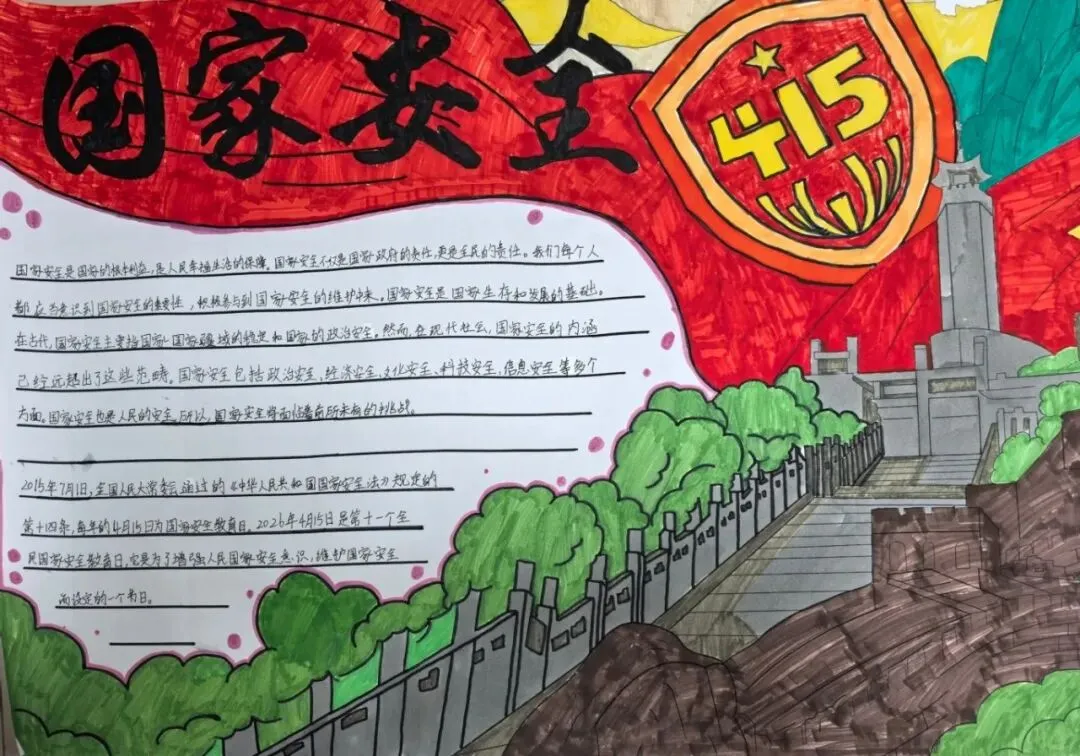 国家安全
415
国家安全是国家的根本利益,是人民幸福生活的保障。国家安全不仅是国家政府的责任,更是全民的责任。我们每个人
都应当意识到国家安全的重要性,积极参与到国家安全的维护中来。国家安全是国家生存和发展的基础。
在古代,国家安全主要指国家国家疆域的稳定和国家的政治安全。然而,在现代社会,国家安全的内涵
已经远超出了这些范畴。国家安全包括政治安全、经济安全、文化安全、科技安全,信息安全等多个
方面。国家安全也是人民的安全。所以,国家安全将面临着前所未有的挑战。
2015年7月1日,全国人民大常委会通过的《中华人民共和国国家安全法》规定的
第十四条,每年的4月15日为国家安全教育日。2026年4月15日是第十一个全
民国家安全教育日,它是为了增强人民国家安全意识,维护国家安全
而设定的一个节日。